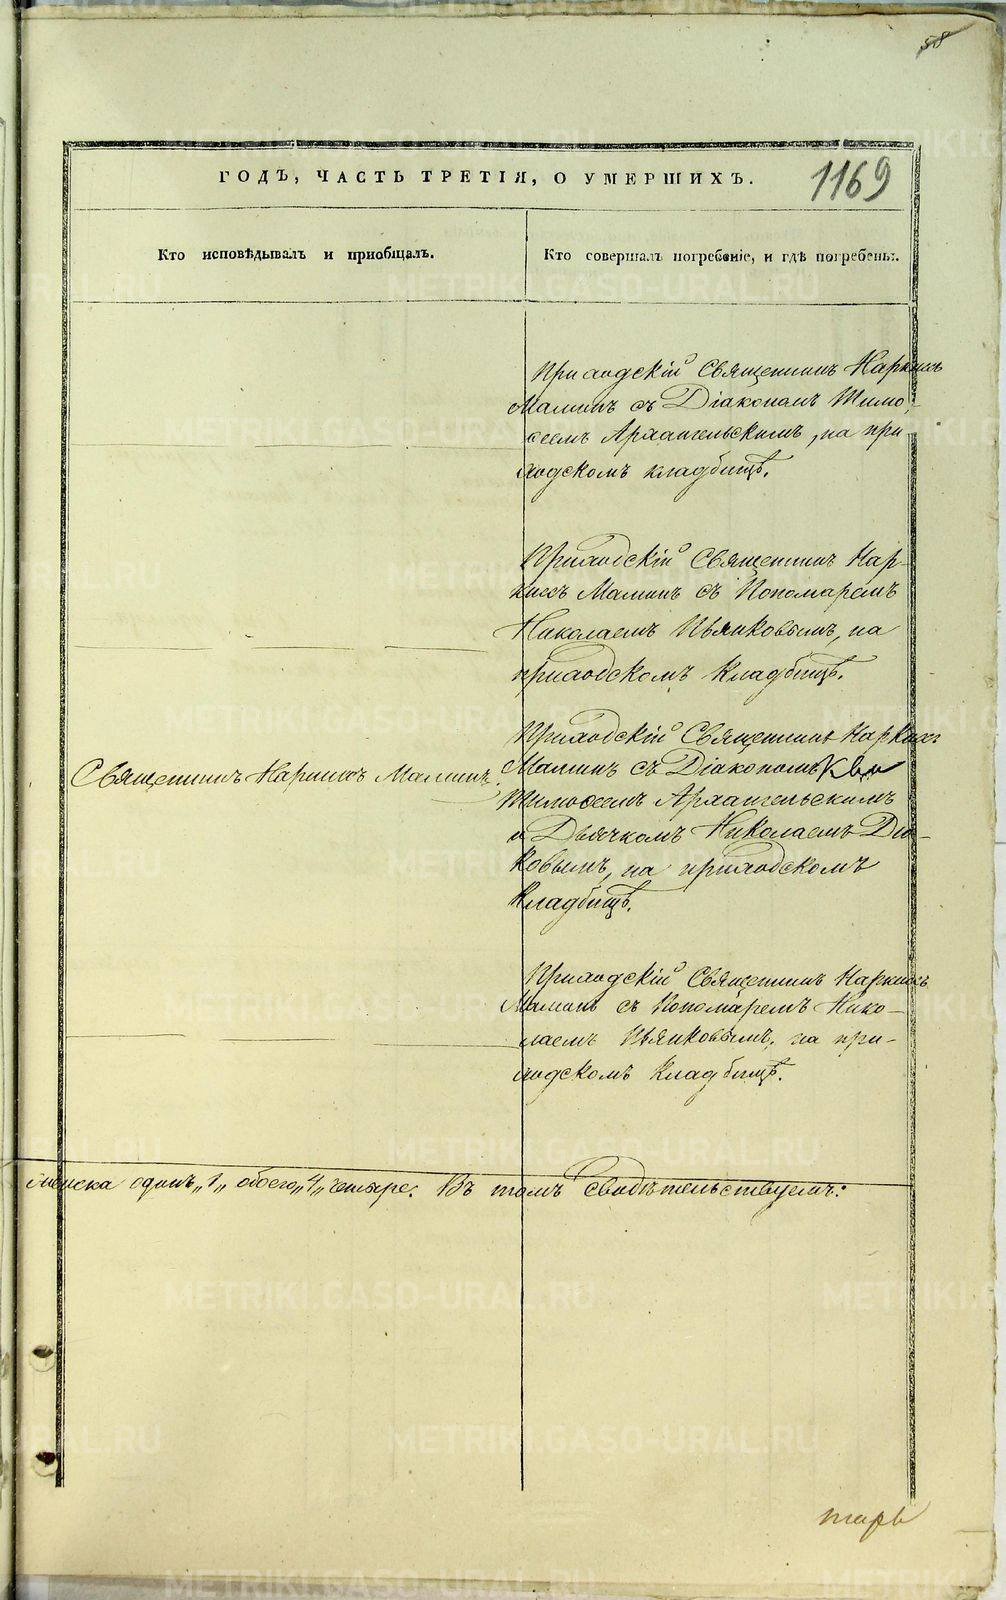 58
ГОДЪ, ЧАСТЬ ТРЕТІЯ, О УМЕРШИХЪ.
1169
Кто исповѣдывалъ и пріобщалъ.
Кто совершалъ погребеніе, и гдѣ погребены.
Приходскій Священникъ Наркисъ
Маминъ съ Діакономъ Тимо-
ѳеемъ Архангельскимъ, на при
ходскомъ кладбищѣ.
Приходскій Священникъ Нар-
кисъ Маминъ съ Пономаремъ
Николаемъ Пьянковымъ, на
приходскомъ Кладбищѣ.
Священникъ Наркисъ Маминъ.
Приходскій Священникъ Наркисъ
Маминъ съ Діакономъ
Тимоѳеемъ Архангельскимъ
и Дьячкомъ Николаемъ
ковымъ, на приходскомъ
Кладбищѣ.
Приходскій Священникъ Наркисъ
Маминъ съ Пономаремъ Нико-
лаемъ Пьянковымъ, на при-
ходскомъ Кладбищѣ.
женска одинъ „1„ обоего „4„ четыре. Въ томъ свидѣтельствуемъ:
тарь
METRIKI.GASO-URAL.RU